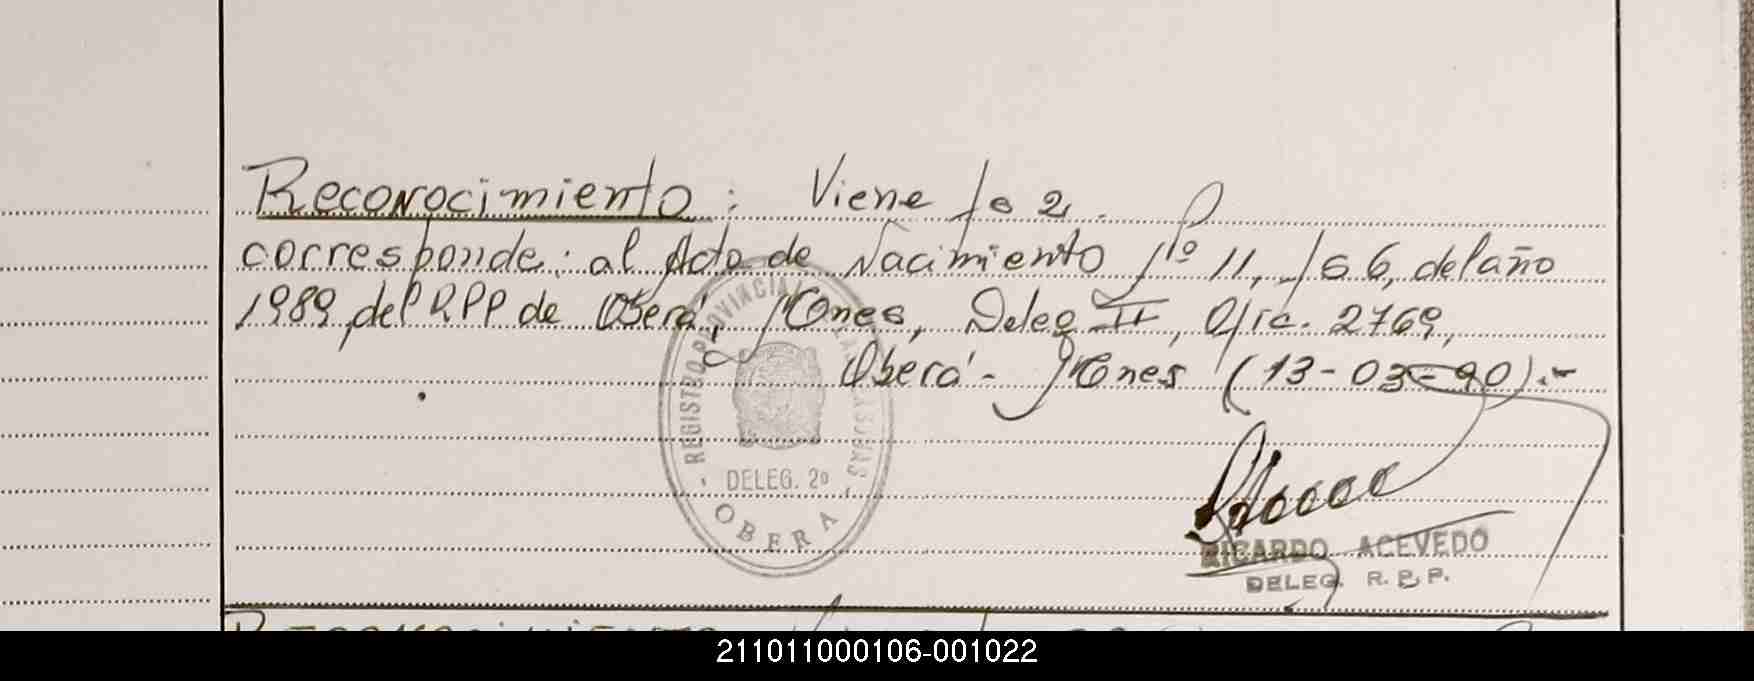 Reconocimiento: Viene fo 2.
corresponde: al Acta de Nacimiento Nº 11, fo 6, del año
1989, del RPP de Oberá, Mnes, Deleg II, Ofic. 2769,
Oberá - Mnes (13-03-90).-
REGISTRO PROVINCIAL DE LAS PERSONAS
DELEG. 2º
OBERA
RICARDO ACEVEDO
DELEG. R.P.P.
211011000106-001022